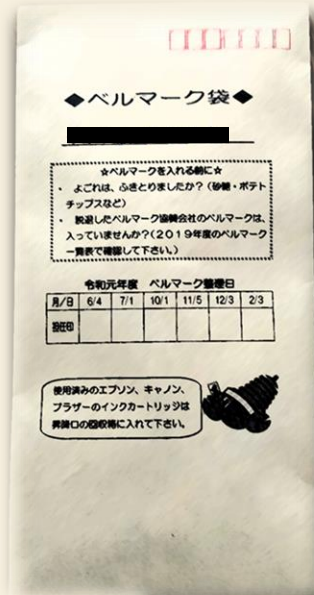 ◆ベルマーク袋◆
☆ベルマークを入れる前に☆
・ よごれは、ふきとりましたか?(砂糖・ポテト
チップスなど)
・ 脱退したベルマーク協賛会社のベルマークは、
入っていませんか?(2019年度のベルマーク
一覧表で確認して下さい。)
令和元年度 ベルマーク整理日
月/日 6/4 7/1 10/1 11/5 12/3 2/3
担任印
使用済みのエプソン、キャノン、
ブラザーのインクカートリッジは
昇降口の回収箱に入れて下さい。